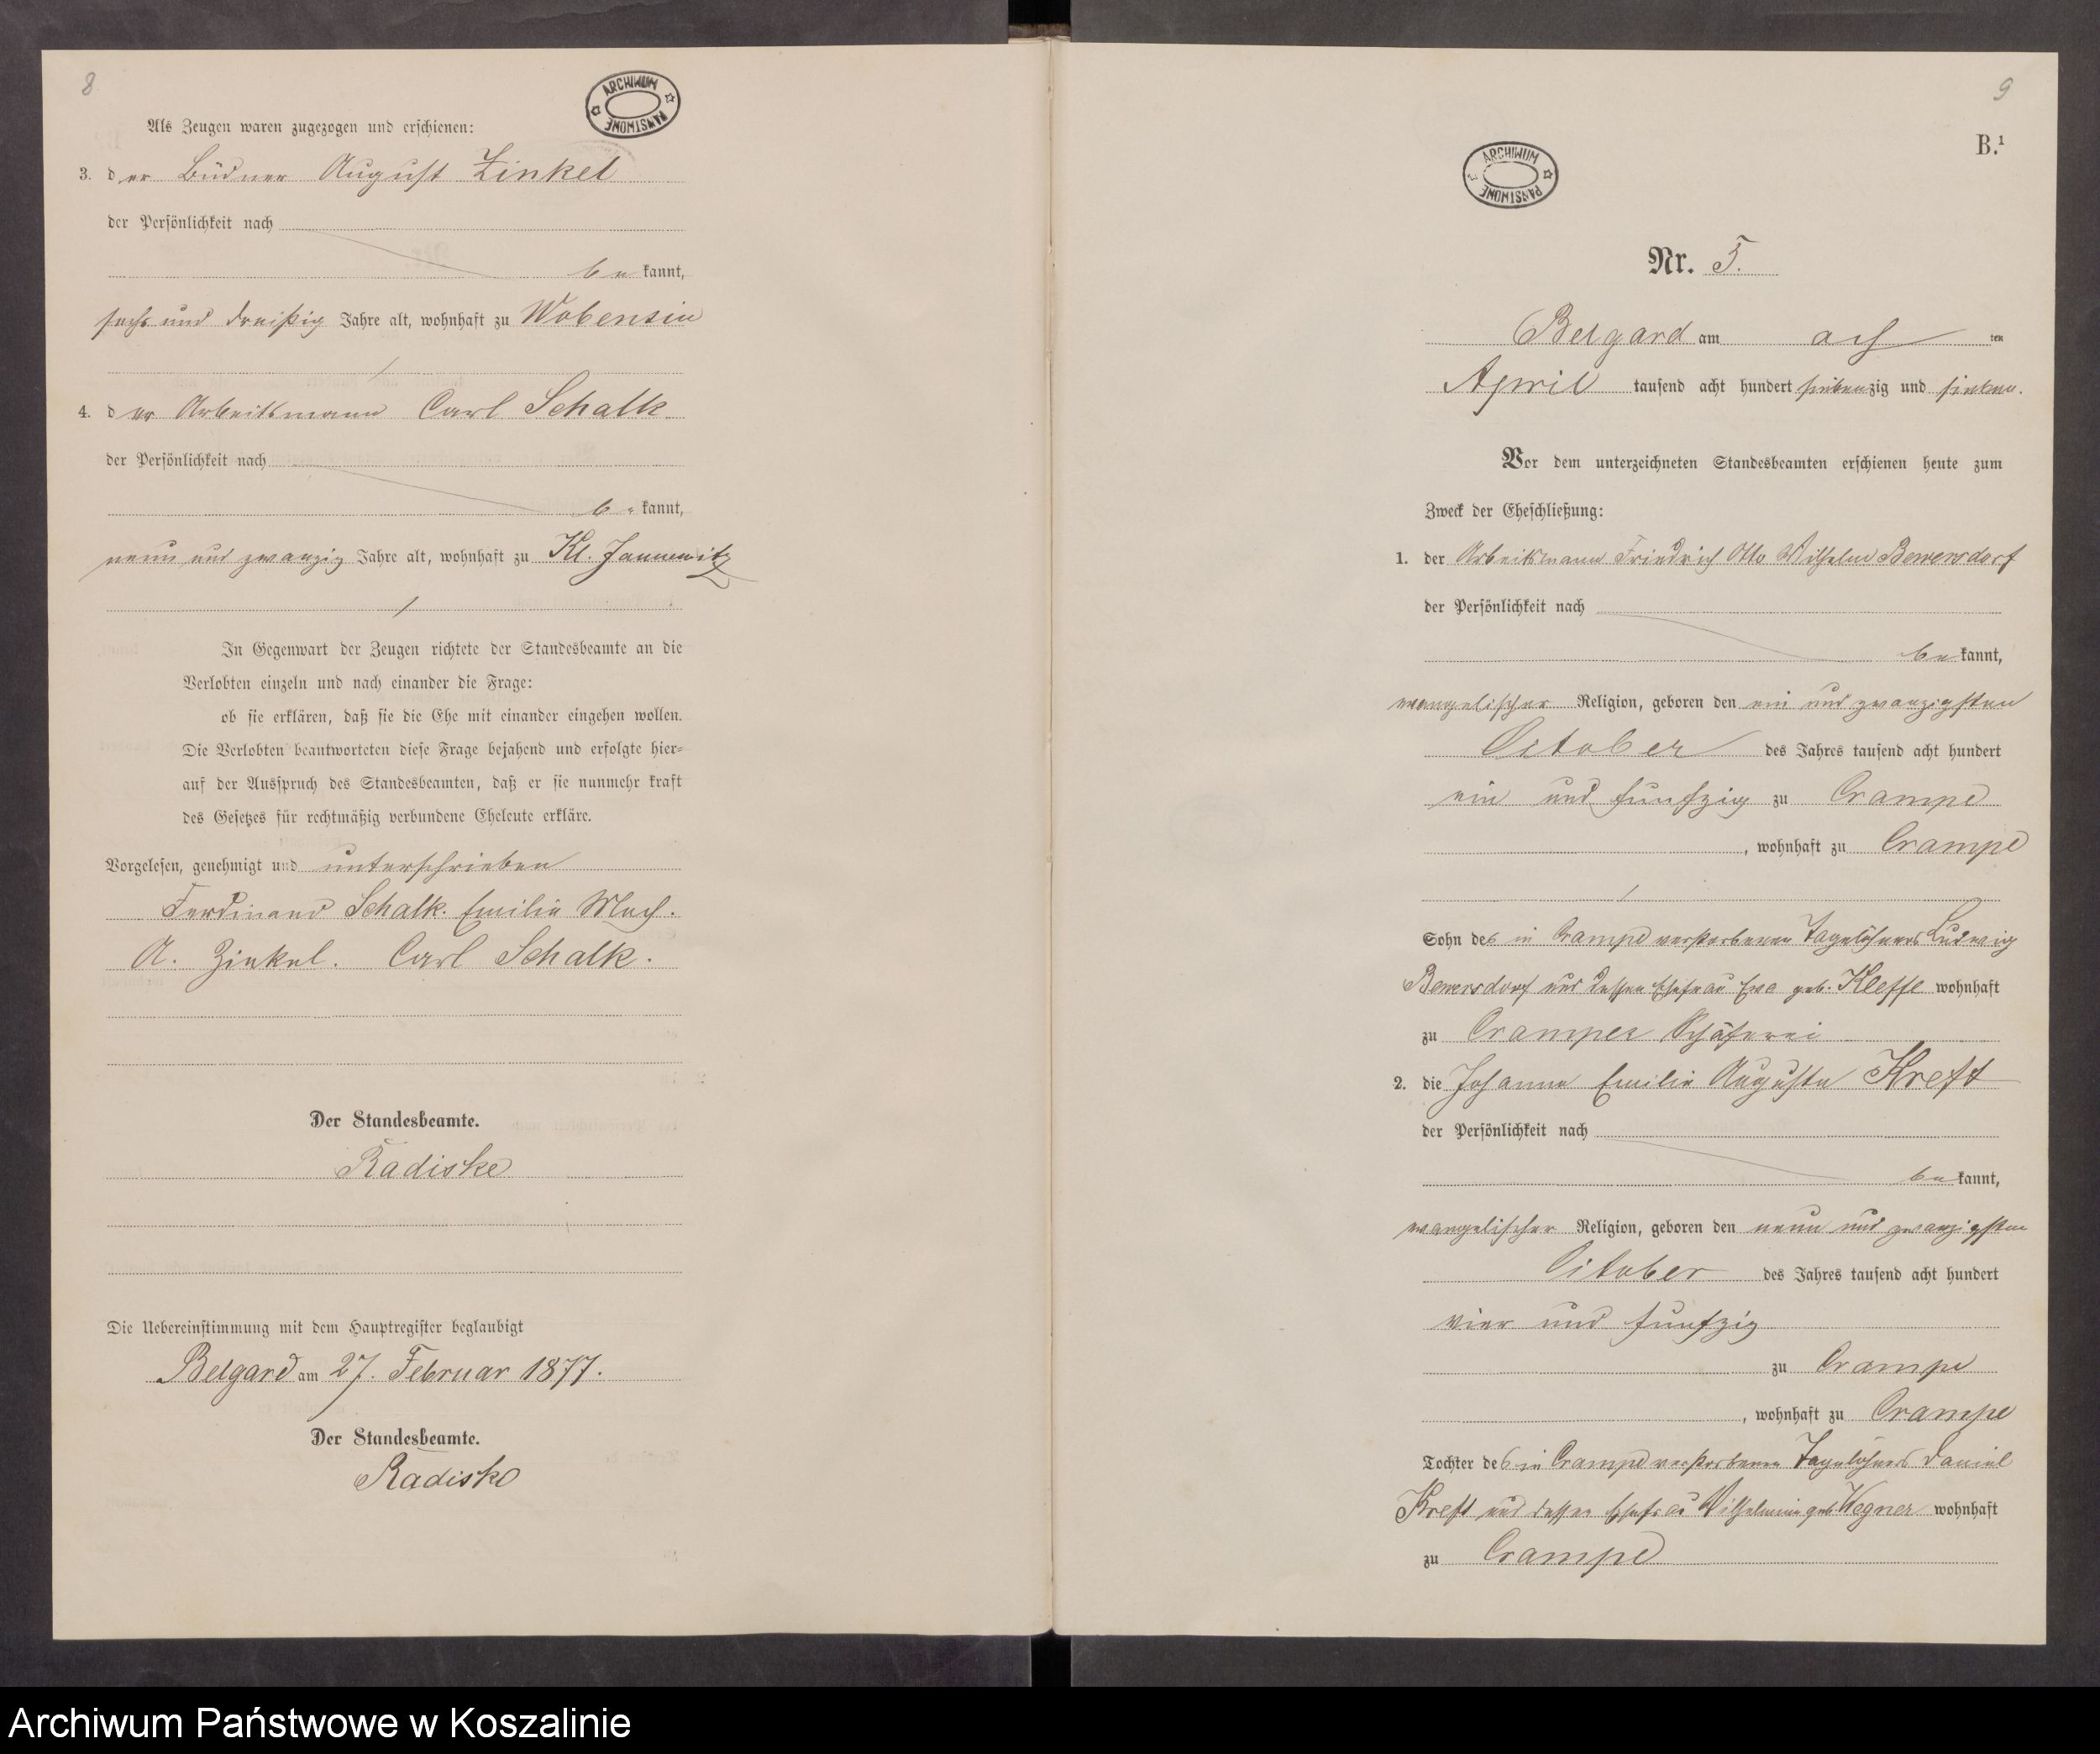 8
ARCHIWUM PAŃSTWOWE
Als Zeugen waren zugezogen und erschienen:
3. der Büdner August Zinkel
der Persönlichkeit nach
be kannt,
sechs und dreißig Jahre alt, wohnhaft zu Wobensin
4. der Arbeitsmann Carl Schalk
der Persönlichkeit nach
be kannt,
neun und zwanzig Jahre alt, wohnhaft zu Kl. Jannewitz
In Gegenwart der Zeugen richtete der Standesbeamte an die
Verlobten einzeln und nach einander die Frage:
ob sie erklären, daß sie die Ehe mit einander eingehen wollen.
Die Verlobten beantworteten diese Frage bejahend und erfolgte hier-
auf der Ausspruch des Standesbeamten, daß er sie nunmehr kraft
des Gesetzes für rechtmäßig verbundene Eheleute erkläre.
Vorgelesen, genehmigt und unterschrieben
Ferdinand Schalk. Emilie Mach.
A. Zinkel. Carl Schalk.
Der Standesbeamte.
Radiske
Die Uebereinstimmung mit dem Hauptregister beglaubigt
Belgard am 27. Februar 1877.
Der Standesbeamte.
Radiske
9
B.1
ARCHIWUM PAŃSTWOWE
Nr. 5.
Belgard am ach ten
April tausend acht hundert siebenzig und sieben.
Vor dem unterzeichneten Standesbeamten erschienen heute zum
Zweck der Eheschließung:
1. der Arbeitsmann Friedrich Otto Wilhelm Bewersdorf
der Persönlichkeit nach
be kannt,
evangelischer Religion, geboren den ein und zwanzigsten
October des Jahres tausend acht hundert
ein und funfzig zu Crampe
, wohnhaft zu Crampe
Sohn des in Crampe verstorbenen Tagelöhners Ludwig
Bewersdorf und dessen Ehefrau Eva geb. Kleffe wohnhaft
zu Cramper Schäferei
2. die Johanne Emilie Auguste Kreft
der Persönlichkeit nach
be kannt,
evangelischer Religion, geboren den neun und zwanzigsten
October des Jahres tausend acht hundert
vier und funfzig
zu Crampe
, wohnhaft zu Crampe
Tochter des in Crampe verstorbenen Tagelöhners Daniel
Kreft und dessen Ehefrau Wilhelmine geb. Wegner wohnhaft
zu Crampe
Archiwum Państwowe w Koszalinie